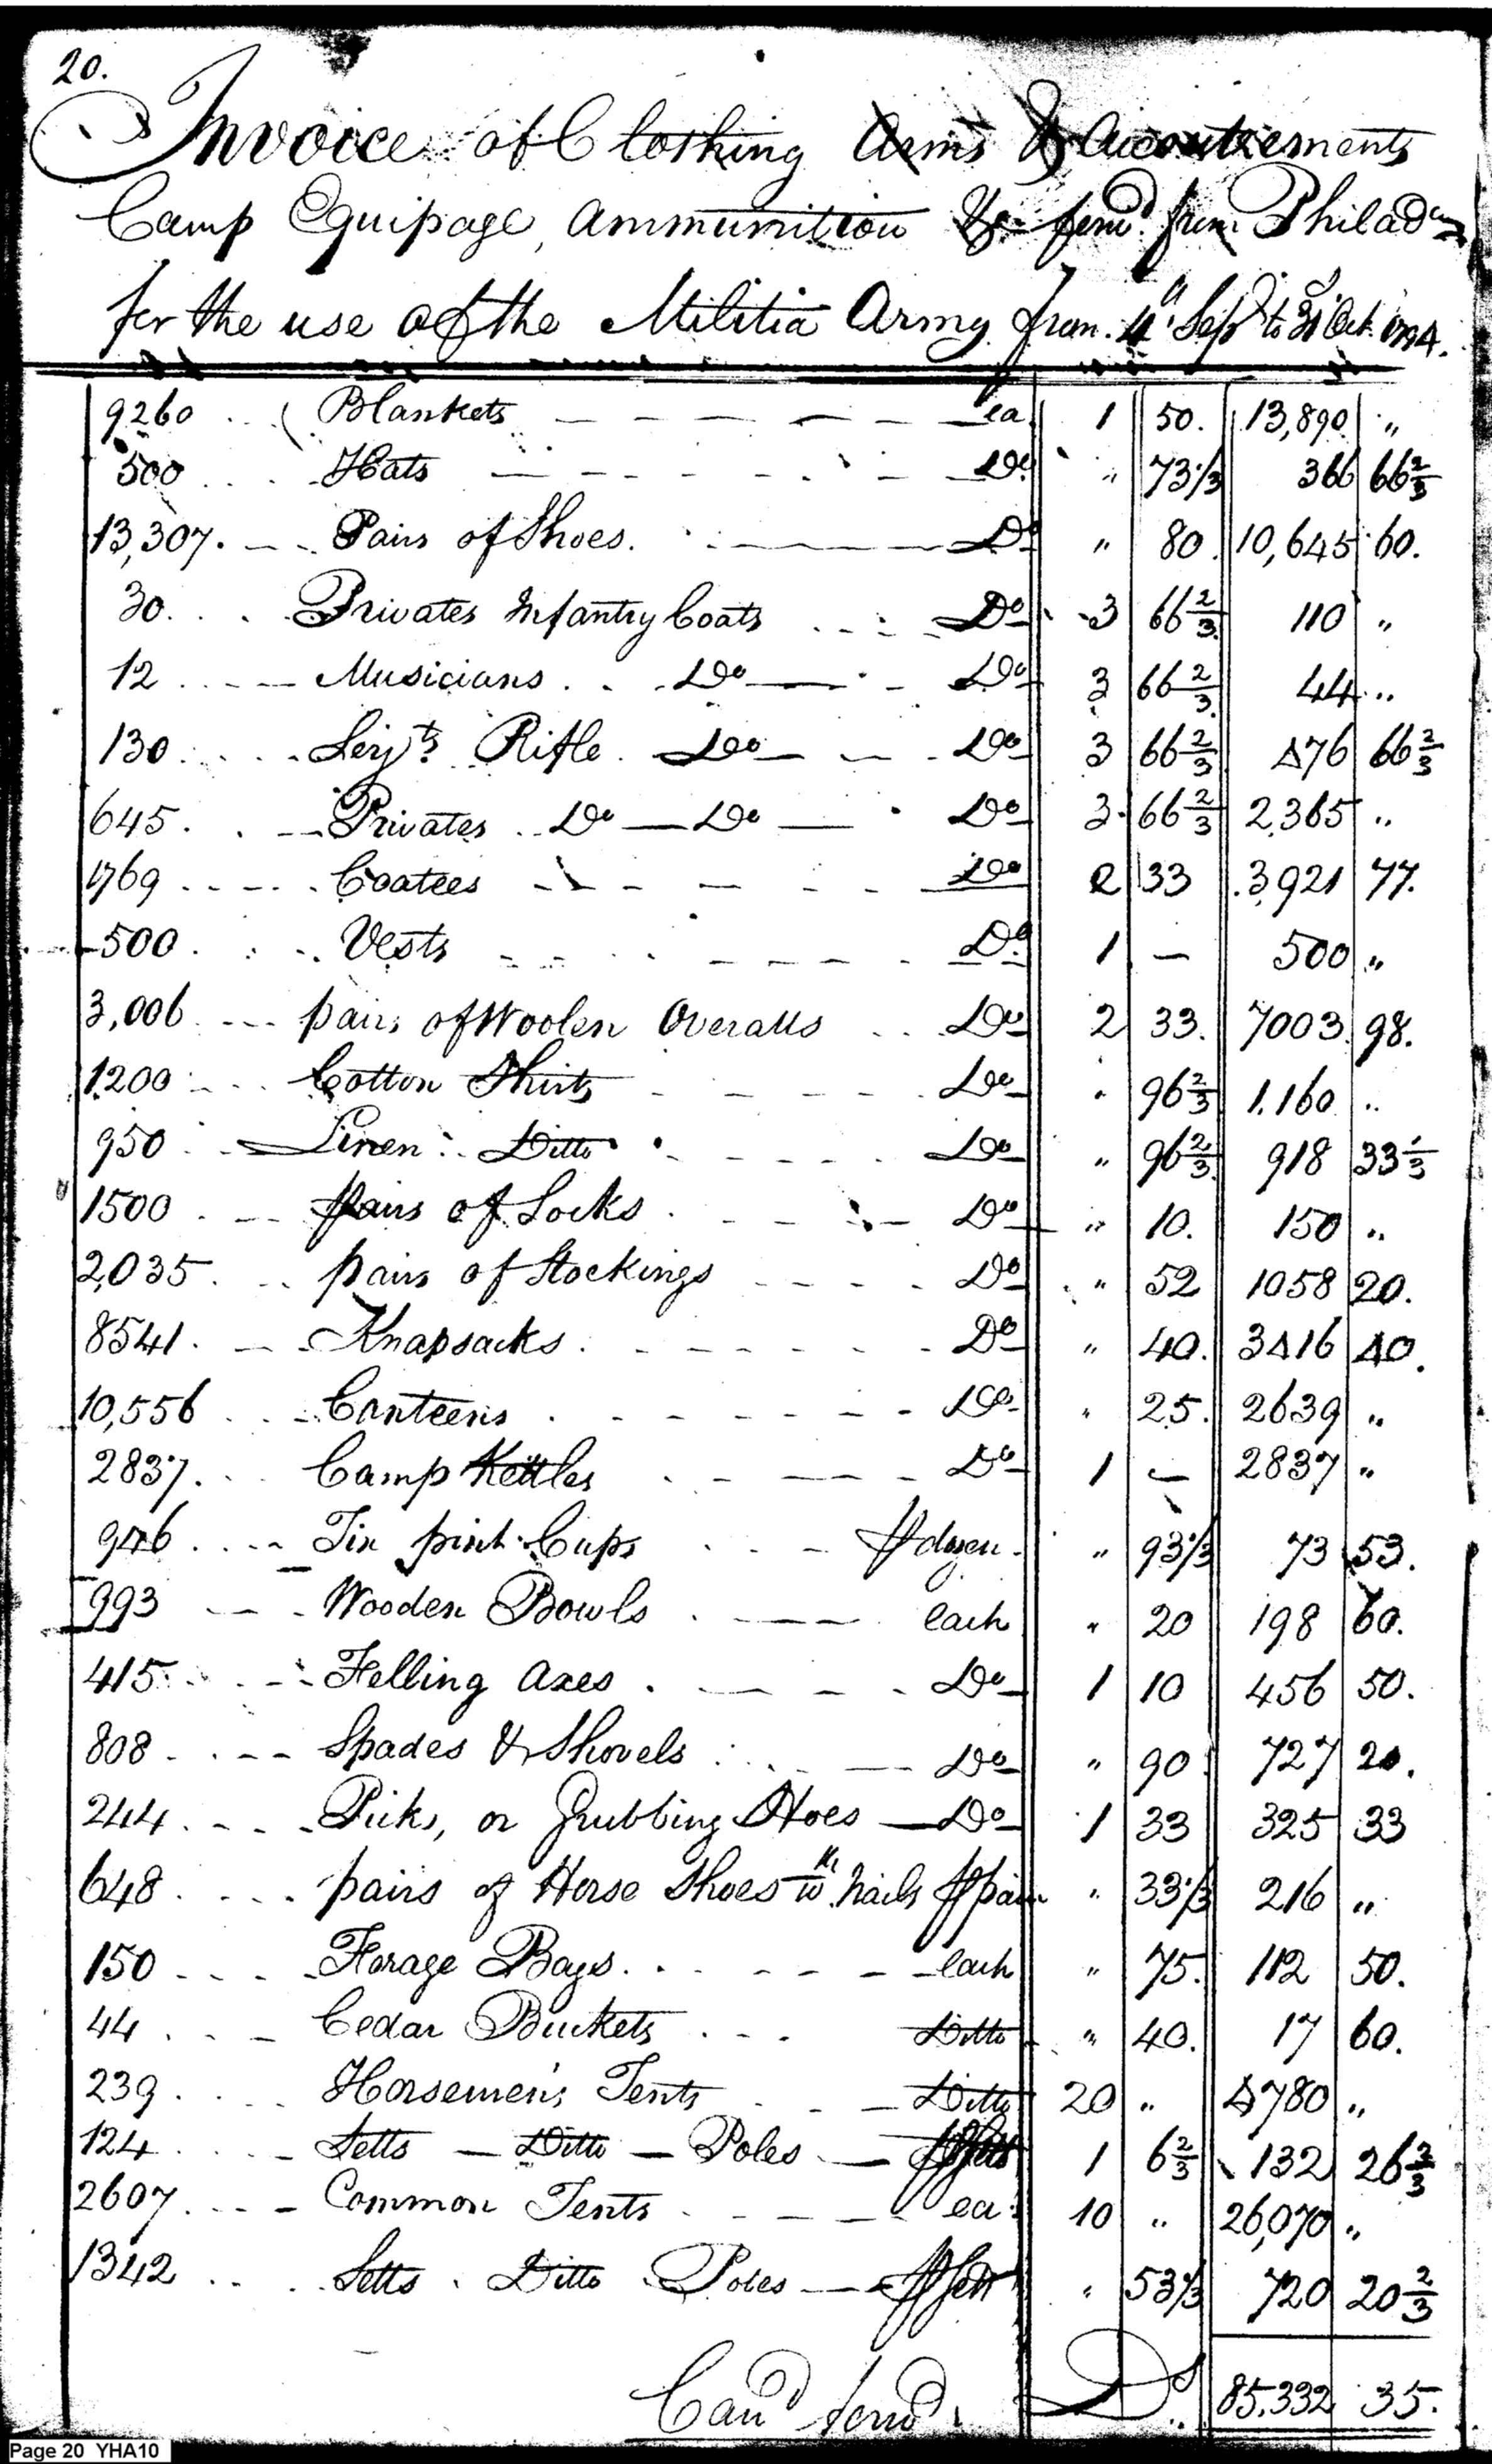 20.
Invoice of Clothing Arms & Accoutrements
Camp Equipage, Ammunition &c. forwd. from Philada
for the use of the Militia Army from 4th Sepr to 31st Oct. 1794.
9260 Blankets ea 1 50. 13,890 "
500 Hats Do. " 73 1/3 366 66 2/3
13,307. Pairs of Shoes. Do " 80. 10,645 60.
30. Privates Infantry Coats Do 3 66 2/3 110 "
12 Musicians Do Do 3 66 2/3 44 "
130 Serjts Rifle Do Do 3 66 2/3 476 66 2/3
645. Privates Do Do Do 3 66 2/3 2,365 "
1769 Coatees Do 2 33 3,921 77.
500 Vests Do. 1 — 500 "
3,006 pairs of Woolen Overalls Do 2 33. 7003 98.
1200 Cotton Shirts Do " 96 2/3 1.160 "
950 Linen Ditto Do " 96 2/3 918 33 1/3
1500 pairs of Socks Do " 10. 150 "
2,035 pairs of Stockings Do " 52 1058 20.
8541. Knapsacks. Do " 40. 3416 40.
10,556 Canteens Do " 25. 2639 "
2837. Camp Kettles Do 1 — 2837 "
946 Tin pint Cups ⅌ dozen " 93 1/3 73 53.
993 Wooden Bowls each " 20 198 60.
415 Felling Axes Do 1 10 456 50.
808 Spades & Shovels Do " 90 727 20.
244 Picks, or Grubbing Hoes Do 1 33 325 33
648 pairs of Horse Shoes wth. Nails ⅌ pair " 33 1/3 216 "
150 Forage Bags. each " 75. 112 50.
44 Cedar Buckets Ditto " 40. 17 60.
239. Horsemen's Tents Ditto 20 " 4780 "
124 Setts Ditto Poles ⅌ Sett 1 6 2/3 132 26 2/3
2607 Common Tents ea 10 " 26,070 "
1342 Setts Ditto Poles ⅌ Sett " 53 1/3 720 20 2/3
Card forwd. Ds. 85,332 35.
Page 20 YHA10